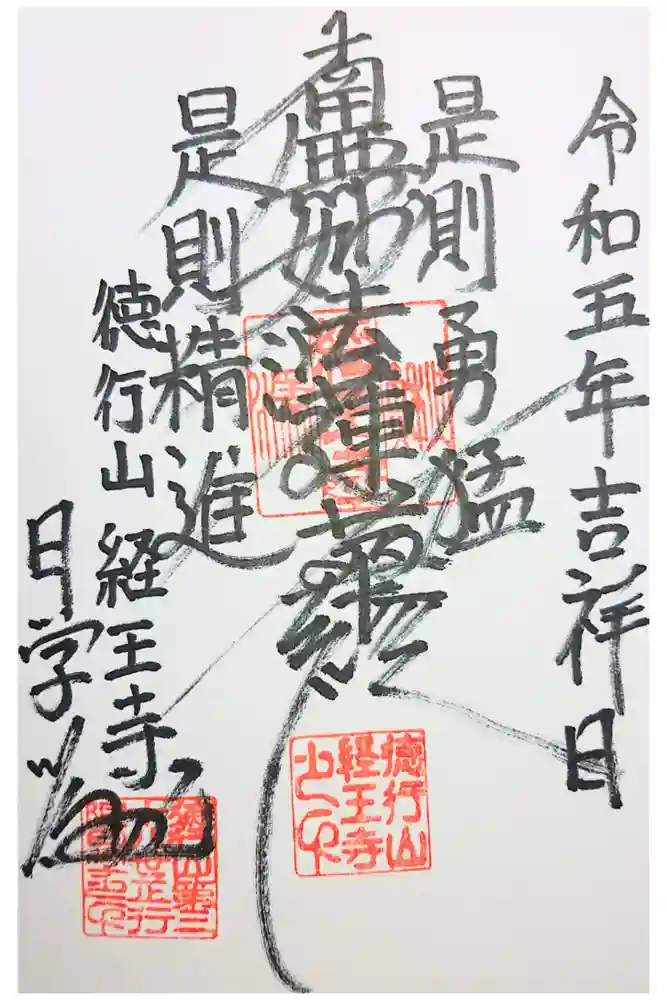 令和五年吉祥日
是則勇猛
南無妙法蓮華経
是則精進
徳行山 経王寺
日学
徳行山
経王寺